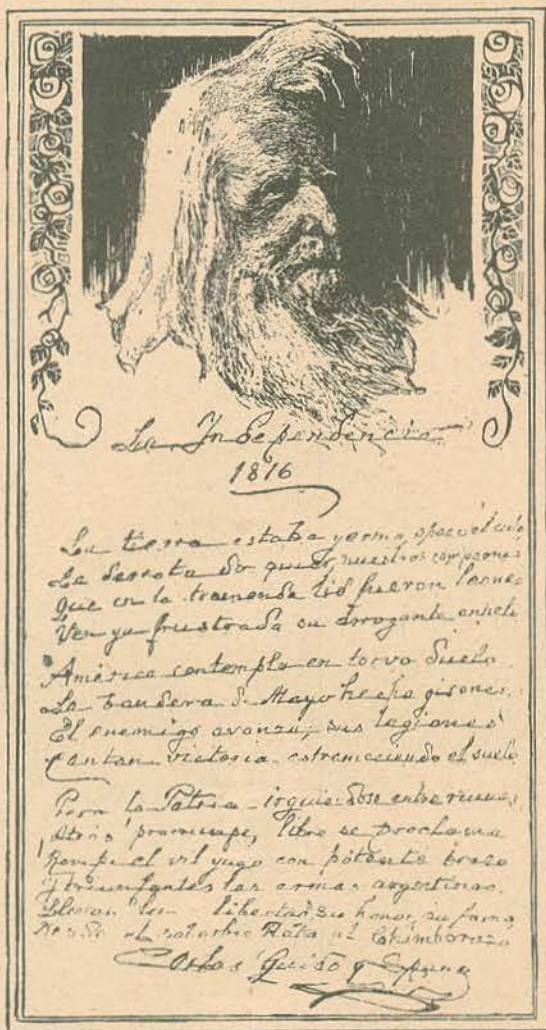 La Independencia
1816
La tierra estaba yerma, opaco el cielo,
La derrota do quier; nuestros campeones
Que en la tremenda lid fueron leones
Ven ya frustrada su arrogante anhelo
América contempla en torvo duelo
La bandera de Mayo hecha girones;
El enemigo avanza; sus legiones
Cantan victoria estremeciendo el suelo
Pero la Patria irguiendose entre ruinas,
¡Atrás! prorrumpe, libre se proclama
Rompe el vil yugo con potente brazo
Y triunfantes las armas argentinas
Llevan la libertad, su honor, su fama,
Desde el soberbio Plata al Chimborazo
Carlos Guido y Spano